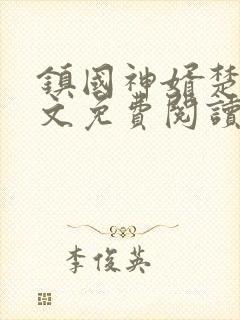 鎮國神婿楚
文免費閱讀
李俊英